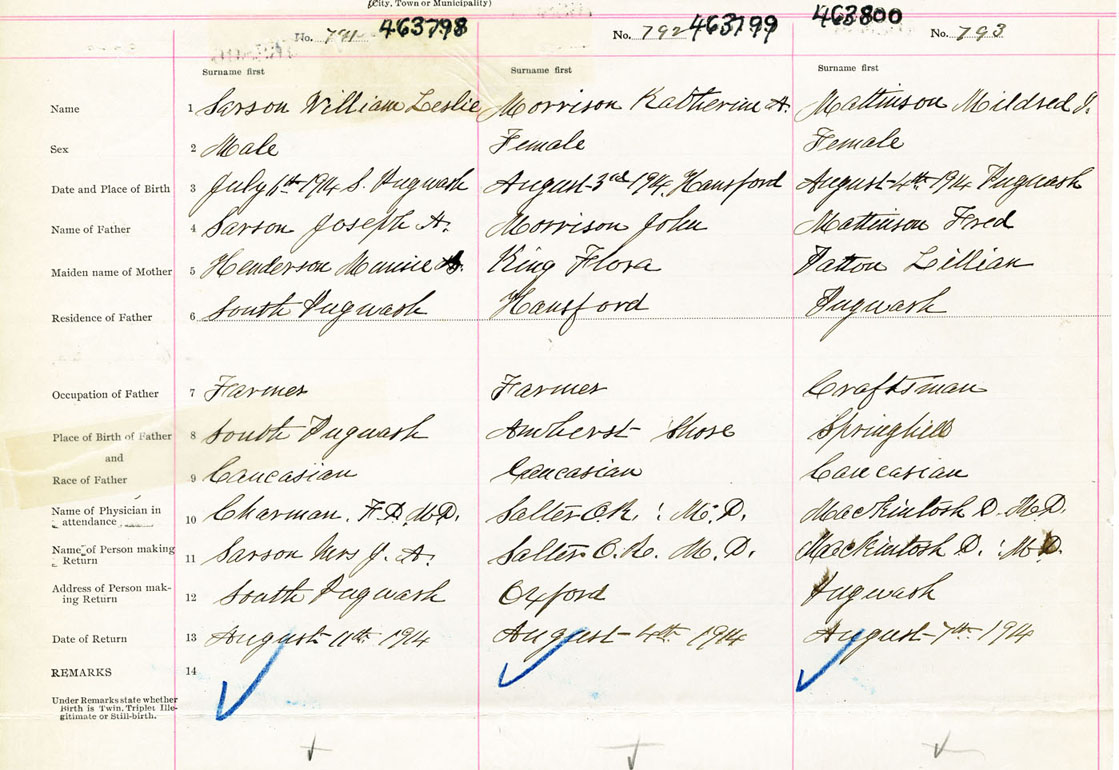 (City, Town or Municipality)
No. 791 463798 No. 792 463799 463800 No. 793
Surname first Surname first Surname first
Name 1 Sarson William Leslie Morrison Katherine A. Mattinson Mildred I.
Sex 2 Male Female Female
Date and Place of Birth 3 July 6th 1914 S. Pugwash August 3rd 1914 Hansford August 4th 1914 Pugwash
Name of Father 4 Sarson Joseph A. Morrison John Mattinson Fred
Maiden name of Mother 5 Henderson Minnie King Flora Patton Lillian
Residence of Father 6 South Pugwash Hansford Pugwash
Occupation of Father 7 Farmer Farmer Craftsman
Place of Birth of Father 8 South Pugwash Amherst Shore Springhill
and
Race of Father 9 Caucasian Caucasian Caucasian
Name of Physician in
attendance 10 Charman. F.D. M.D. Salter C.K. : M.D. MacKintosh D. M.D.
Name of Person making
Return 11 Sarson Mrs J. A. Salter C.K. M.D. MacKintosh D. : M.D.
Address of Person mak-
ing Return 12 South Pugwash Oxford Pugwash
Date of Return 13 August 11th 1914 August 4th 1914 August 7th 1914
REMARKS 14
Under Remarks state whether
Birth is Twin, Triplet Ille-
gitimate or Still-birth.